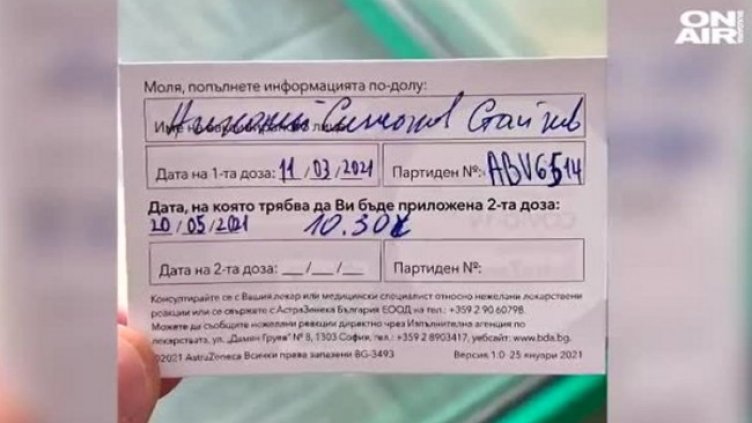 ON
AIR
BULGARIA
Моля, попълнете информацията по-долу:
Симеонов Стайков
Име на ваксинираното лице:
Дата на 1-та доза: 11/03/2021 Партиден №: ABV6514
Дата, на която трябва да Ви бъде приложена 2-та доза:
20/05/2021 10.30
Дата на 2-та доза: __/__/__ Партиден №:
Консултирайте се с Вашия лекар или медицински специалист относно нежелани лекарствени
реакции или се свържете с АстраЗенека България ЕООД на тел.: +359 2 90 60798.
Можете да съобщите нежелани реакции директно чрез Изпълнителна агенция по
лекарствата, ул. „Дамян Груев" № 8, 1303 София, тел.: +359 2 8903417, уебсайт: www.bda.bg.
©2021 AstraZeneca Всички права запазени BG-3493 Версия 1.0-25 януари 2021